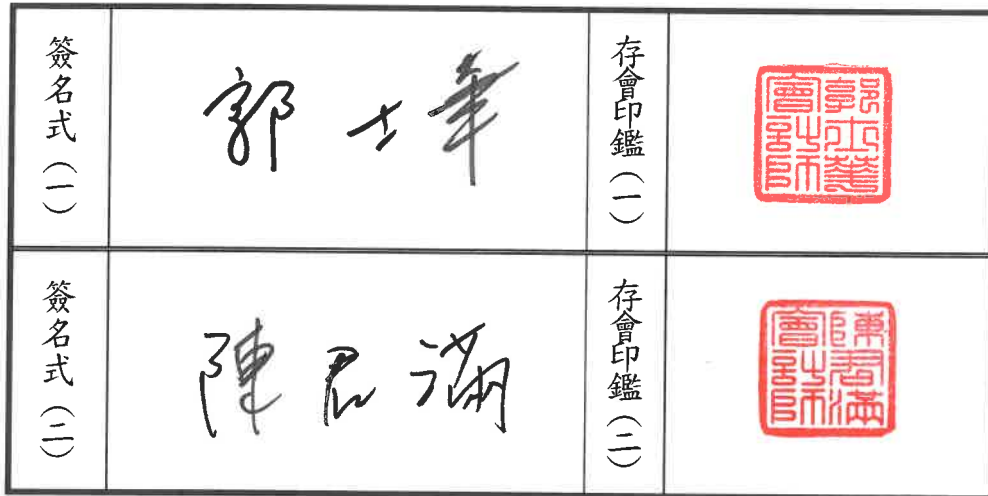 簽名式（一）
郭士華
存會印鑑（一）
郭士華會計師
簽名式（二）
陳君滿
存會印鑑（二）
陳君滿會計師